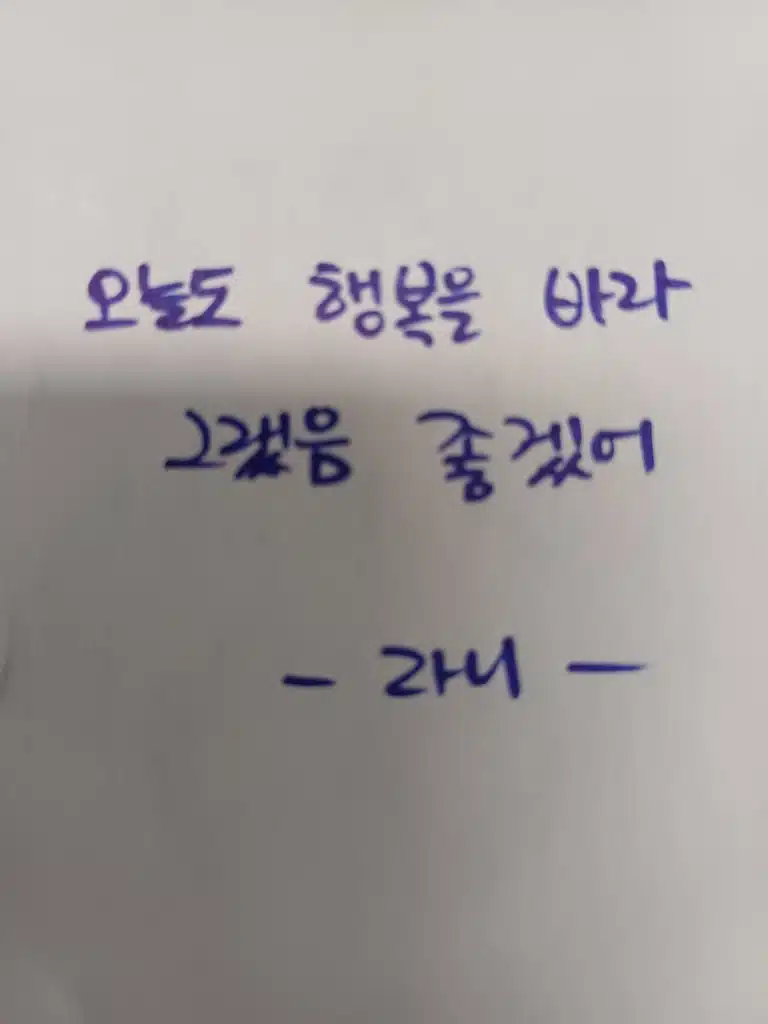 오늘도 행복을 바라
그랬음 좋겠어
- 라니 -